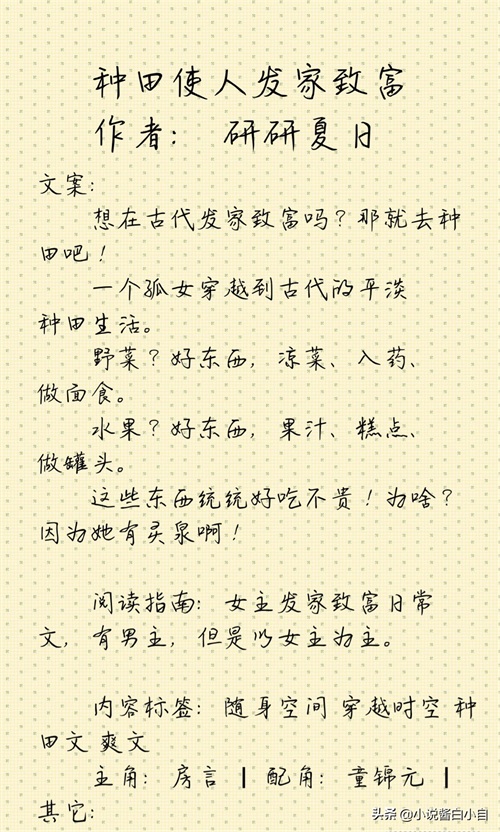 种田使人发家致富
作者: 研研夏日
文案:
想在古代发家致富吗?那就去种
田吧!
一个孤女穿越到古代的平淡
种田生活。
野菜?好东西,凉菜、入药、
做面食。
水果?好东西,果汁、糕点、
做罐头。
这些东西统统好吃不贵!为啥?
因为她有灵泉啊!
阅读指南:女主发家致富日常
文,有男主,但是以女主为主。
内容标签:随身空间 穿越时空 种
田文 爽文
主角:房言 ┃ 配角:童锦元 ┃
其它:
头条 @小说酱白小自